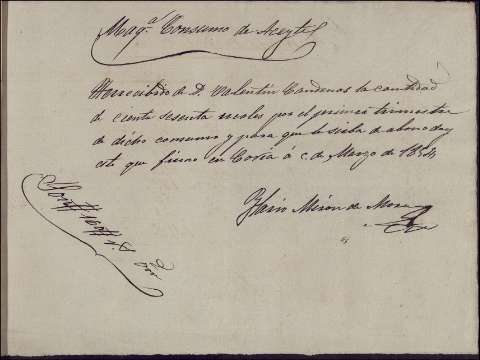 Maqª Consumo de Aceyte
He recibido de D. Valentin Cardenas la cantidad
de ciento sesenta reales por el primer trimestre
de dicho consumo y para que le sirva de abono doy
este que firmo en Coria á 6 de Marzo de 1854
Miron de